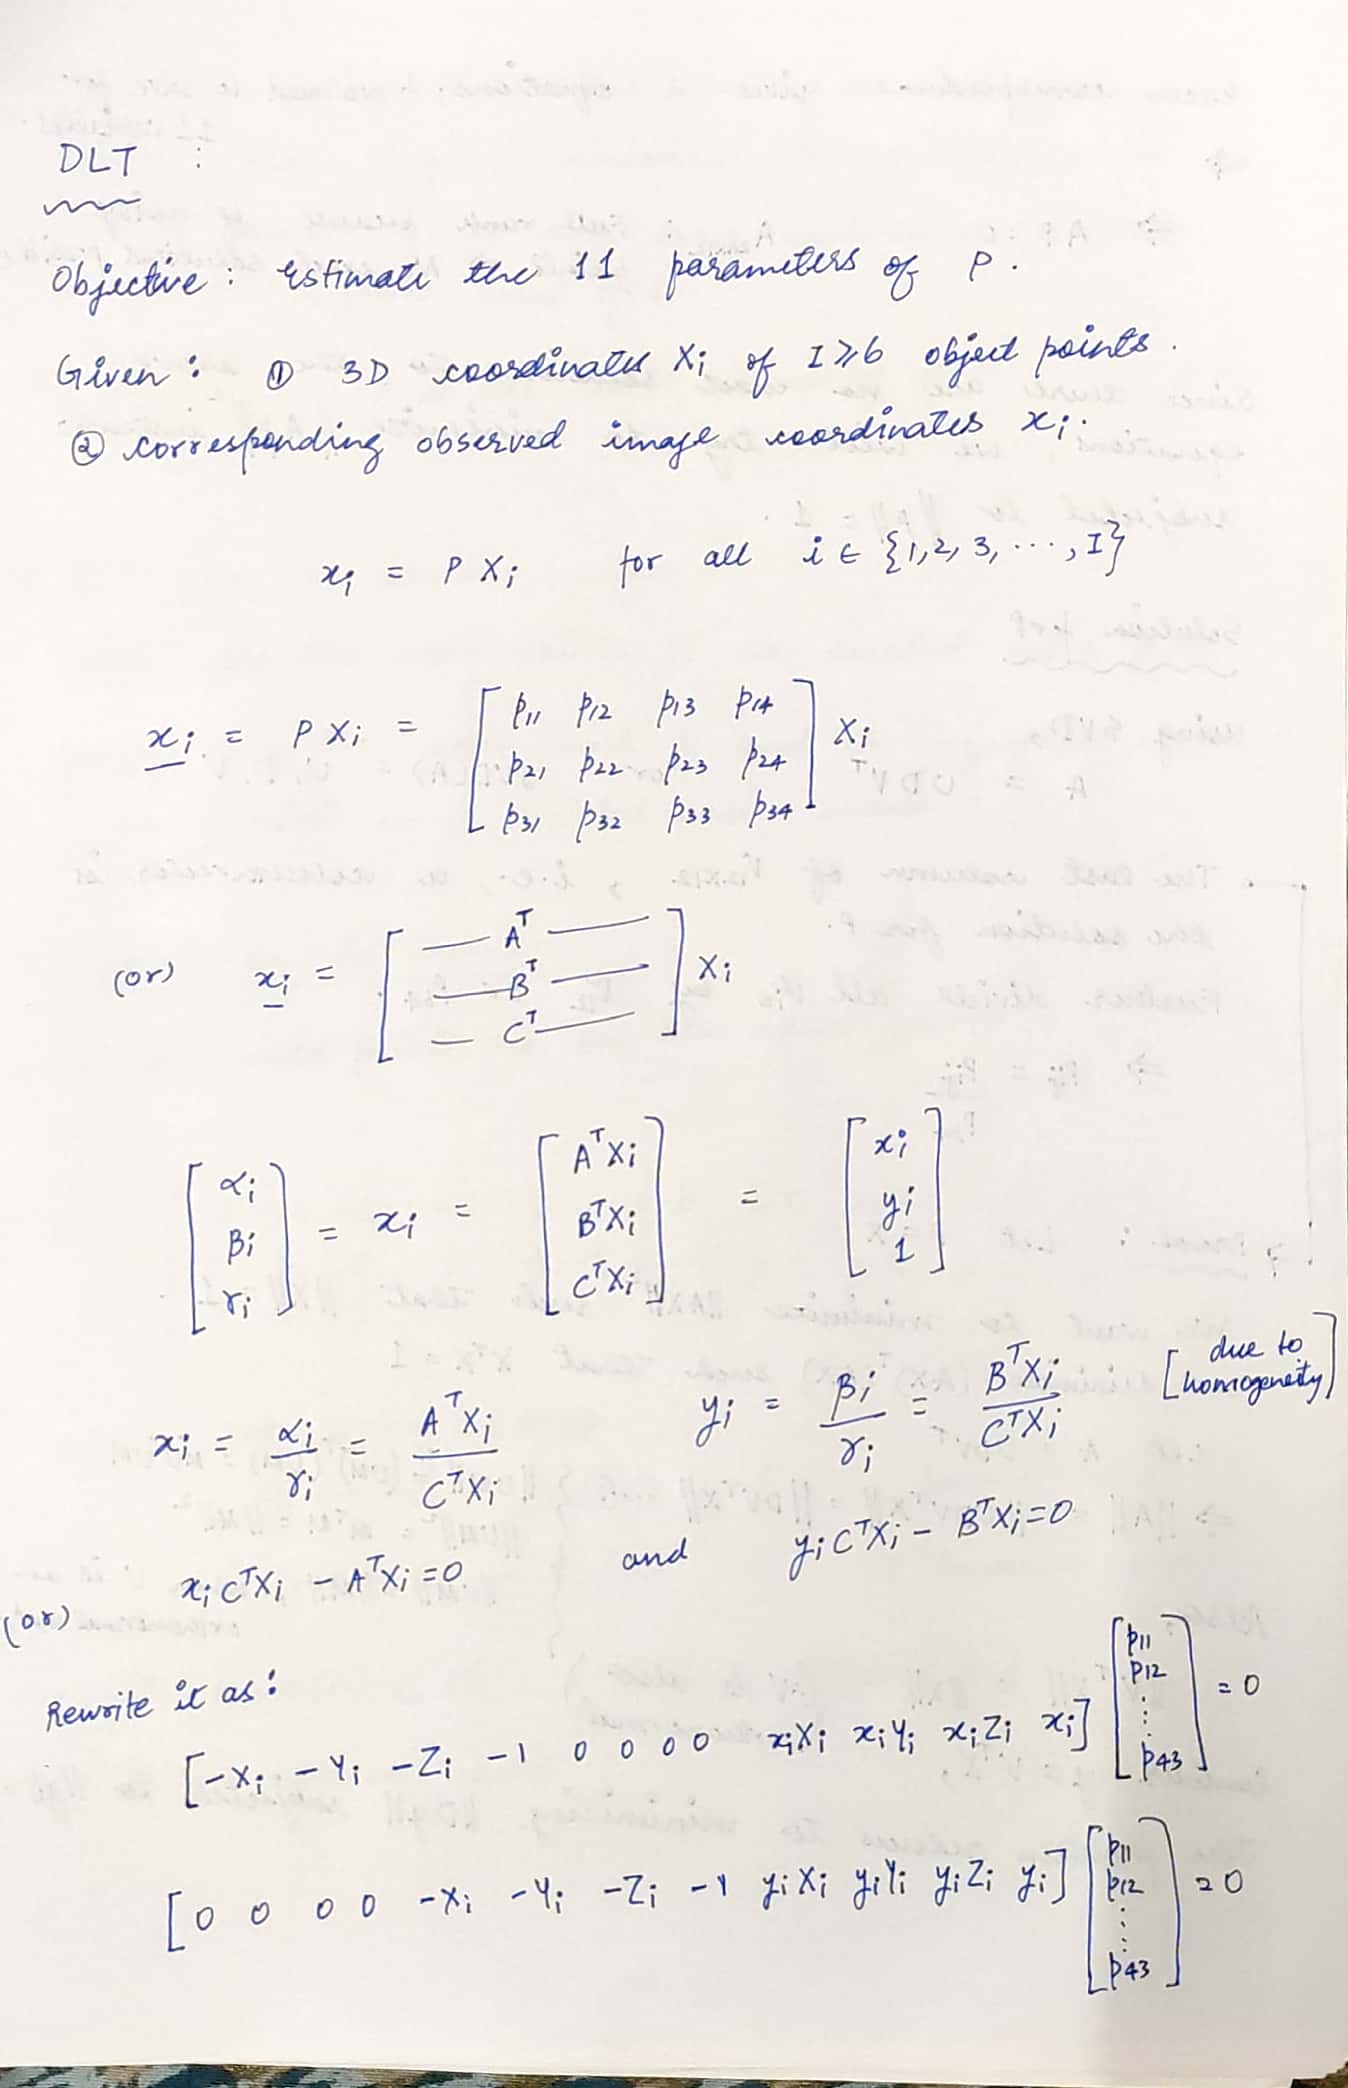 DLT :
Objective : Estimate the 11 parameters of P.
Given : ① 3D coordinates Xi of I ≥ 6 object points.
② corresponding observed image coordinates xi.
xi = P Xi for all i ∈ {1,2,3, ..., I}
xi = P Xi = [ p11 p12 p13 p14
p21 p22 p23 p24
p31 p32 p33 p34 ] Xi
(or) xi = [ — A^T —
— B^T —
— C^T — ] Xi
[ αi
βi
γi ] = xi = [ A^T Xi
B^T Xi
C^T Xi ] = [ xi
yi
1 ]
xi = αi/γi = A^T Xi / C^T Xi yi = βi/γi = B^T Xi / C^T Xi [due to homogeneity]
(or) xi C^T Xi - A^T Xi = 0 and yi C^T Xi - B^T Xi = 0
Rewrite it as :
[-Xi -Yi -Zi -1 0 0 0 0 xiXi xiYi xiZi xi] [p11 p12 ⋮ p43] = 0
[0 0 0 0 -Xi -Yi -Zi -1 yiXi yiYi yiZi yi] [p11 p12 ⋮ p43] = 0